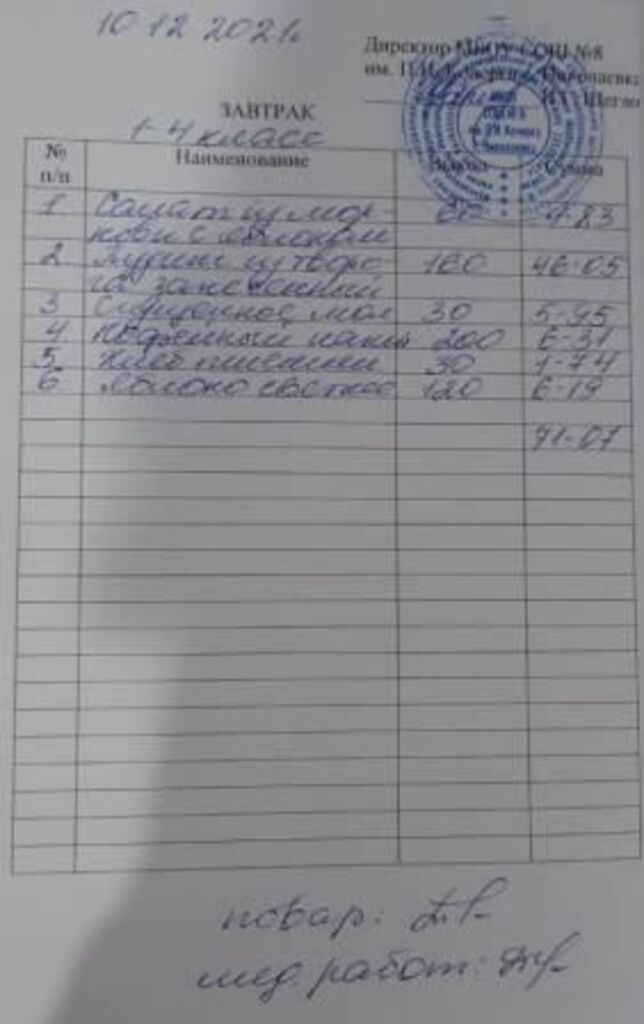 10 12 2021г.
Директор МБОУ СОШ №8
им. П.И.
ЗАВТРАК
1-4 классе
№ п/п Наименование Выход Сумма
1 Салат из мор-
кови с яблоками 60 4-83
2 пудинг из творо-
га запеченный 160 46-05
3 Сгущенное мол 30 5-95
4 Кофейный напит 200 6-31
5 Хлеб пшенич 30 1-74
6 Яблоко свежее 120 6-19
71-07
повар:
мед. работ: